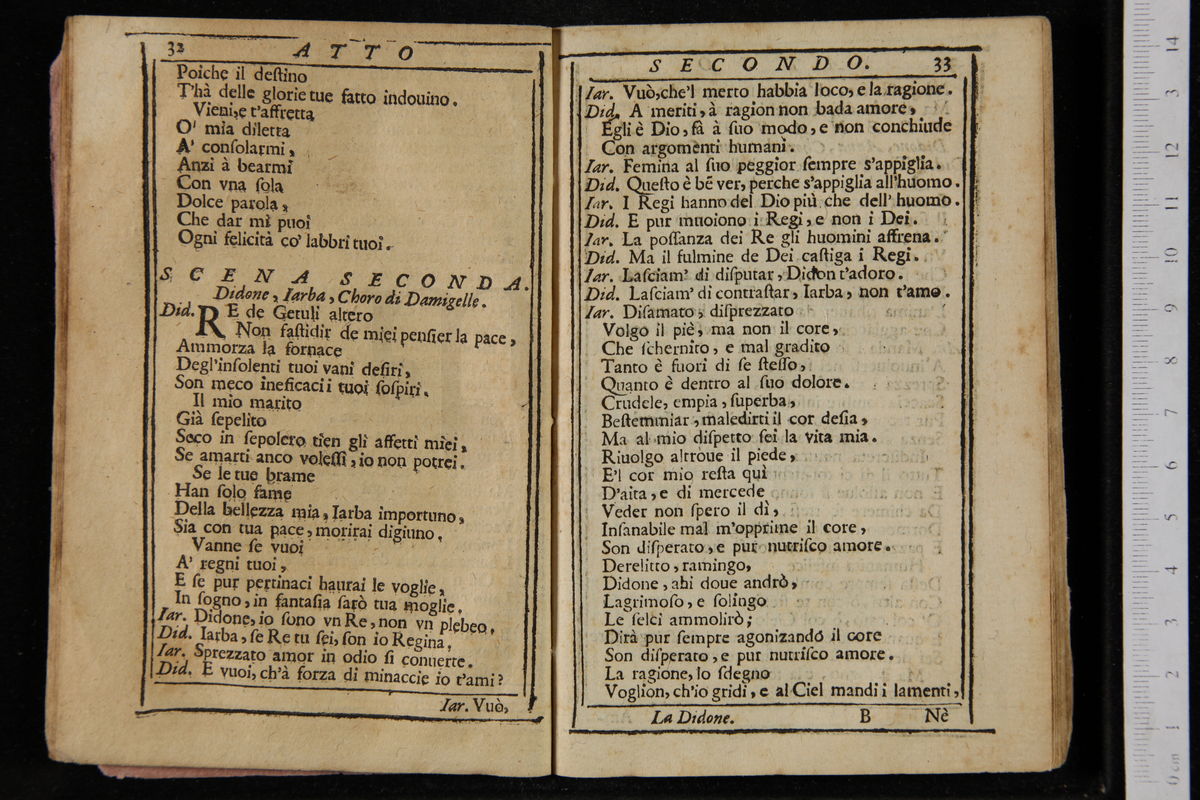 32 ATTO
Poiche il deſtino
T'hà delle glorie tue fatto indouino.
Vieni, e t'affretta
O' mia diletta
A' conſolarmi,
Anzi à bearmi
Con vna ſola
Dolce parola,
Che dar mi puoi
Ogni felicità co' labbri tuoi.
SCENA SECONDA.
Didone, Iarba, Choro di Damigelle.
Did. RE de Getuli altero
Non faſtidir de miei penſier la pace,
Ammorza la fornace
Degl'inſolenti tuoi vani deſiri,
Son meco ineficaci i tuoi ſoſpiri.
Il mio marito
Già ſepelito
Seco in ſepolcro tien gli affetti miei,
Se amarti anco voleſſi, io non potrei.
Se le tue brame
Han ſolo fame
Della bellezza mia, Iarba importuno,
Sia con tua pace, morirai digiuno.
Vanne ſe vuoi
A' regni tuoi,
E ſe pur pertinaci haurai le voglie,
In ſogno, in fantaſia ſarò tua moglie.
Iar. Didone, io ſono vn Re, non vn plebeo.
Did. Iarba, ſe Re tu ſei, ſon io Regina.
Iar. Sprezzato amor in odio ſi conuerte.
Did. E vuoi, ch'à forza di minaccie io t'ami?
Iar. Vuò,
SECONDO. 33
Iar. Vuò, che'l merto habbia loco, e la ragione.
Did. A meriti, à ragion non bada amore,
Egli è Dio, fà à ſuo modo, e non conchiude
Con argomenti humani.
Iar. Femina al ſuo peggior ſempre s'appiglia.
Did. Queſto è bē ver, perche s'appiglia all'huomo.
Iar. I Regi hanno del Dio più che dell'huomo.
Did. E pur muoiono i Regi, e non i Dei.
Iar. La poſſanza dei Re gli huomini affrena.
Did. Ma il fulmine de Dei caſtiga i Regi.
Iar. Laſciam' di diſputar, Didon t'adoro.
Did. Laſciam' di contraſtar, Iarba, non t'amo.
Iar. Diſamato, diſprezzato
Volgo il piè, ma non il core,
Che ſchernito, e mal gradito
Tanto è fuori di ſe ſteſſo,
Quanto è dentro al ſuo dolore.
Crudele, empia, ſuperba,
Beſtemmiar, maledirti il cor deſia,
Ma al mio diſpetto ſei la vita mia.
Riuolgo altroue il piede,
E'l cor mio reſta quì
D'aita, e di mercede
Veder non ſpero il dì,
Inſanabile mal m'opprime il core,
Son diſperato, e pur nutriſco amore.
Derelitto, ramingo,
Didone, ahi doue andrò,
Lagrimoſo, e ſolingo
Le ſelci ammolirò;
Dirà pur ſempre agonizando il core
Son diſperato, e pur nutriſco amore.
La ragione, lo ſdegno
Voglion, ch'io gridi, e al Ciel mandi i lamenti,
La Didone. B Nè
14
13
12
11
10
9
8
7
6
5
4
3
2
1
0 cm